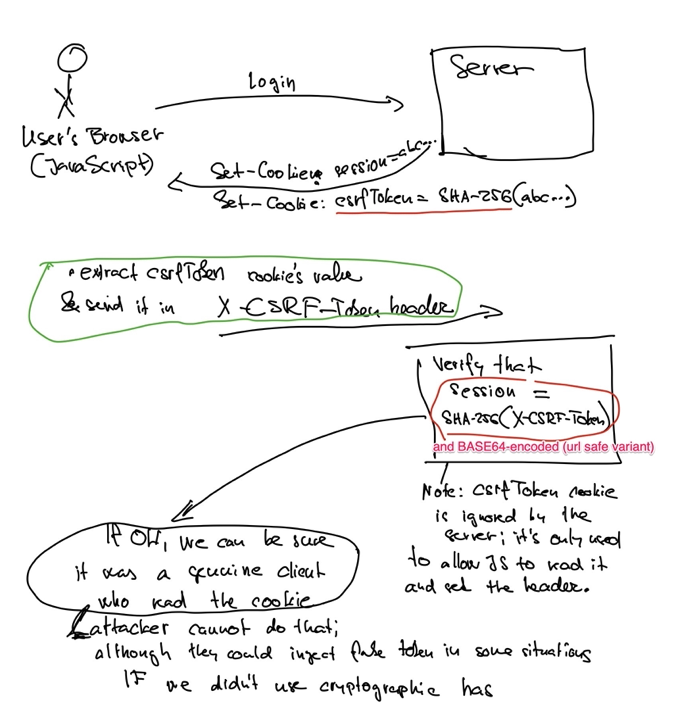 Login
Server
User's Browser
(JavaScript)
Set-Cookie: session=abc...
Set-Cookie: csrfToken = SHA-256(abc...)
• extract csrfToken cookie's value
& send it in X-CSRF-Token header
Verify that
session =
SHA-256(X-CSRF-Token)
and BASE64-encoded (url safe variant)
Note: csrfToken cookie
is ignored by the
server; it's only used
to allow JS to read it
and set the header.
If OK, we can be sure
it was a genuine client
who read the cookie
attacker cannot do that;
although they could inject fake token in some situations
IF we didn't use cryptographic has